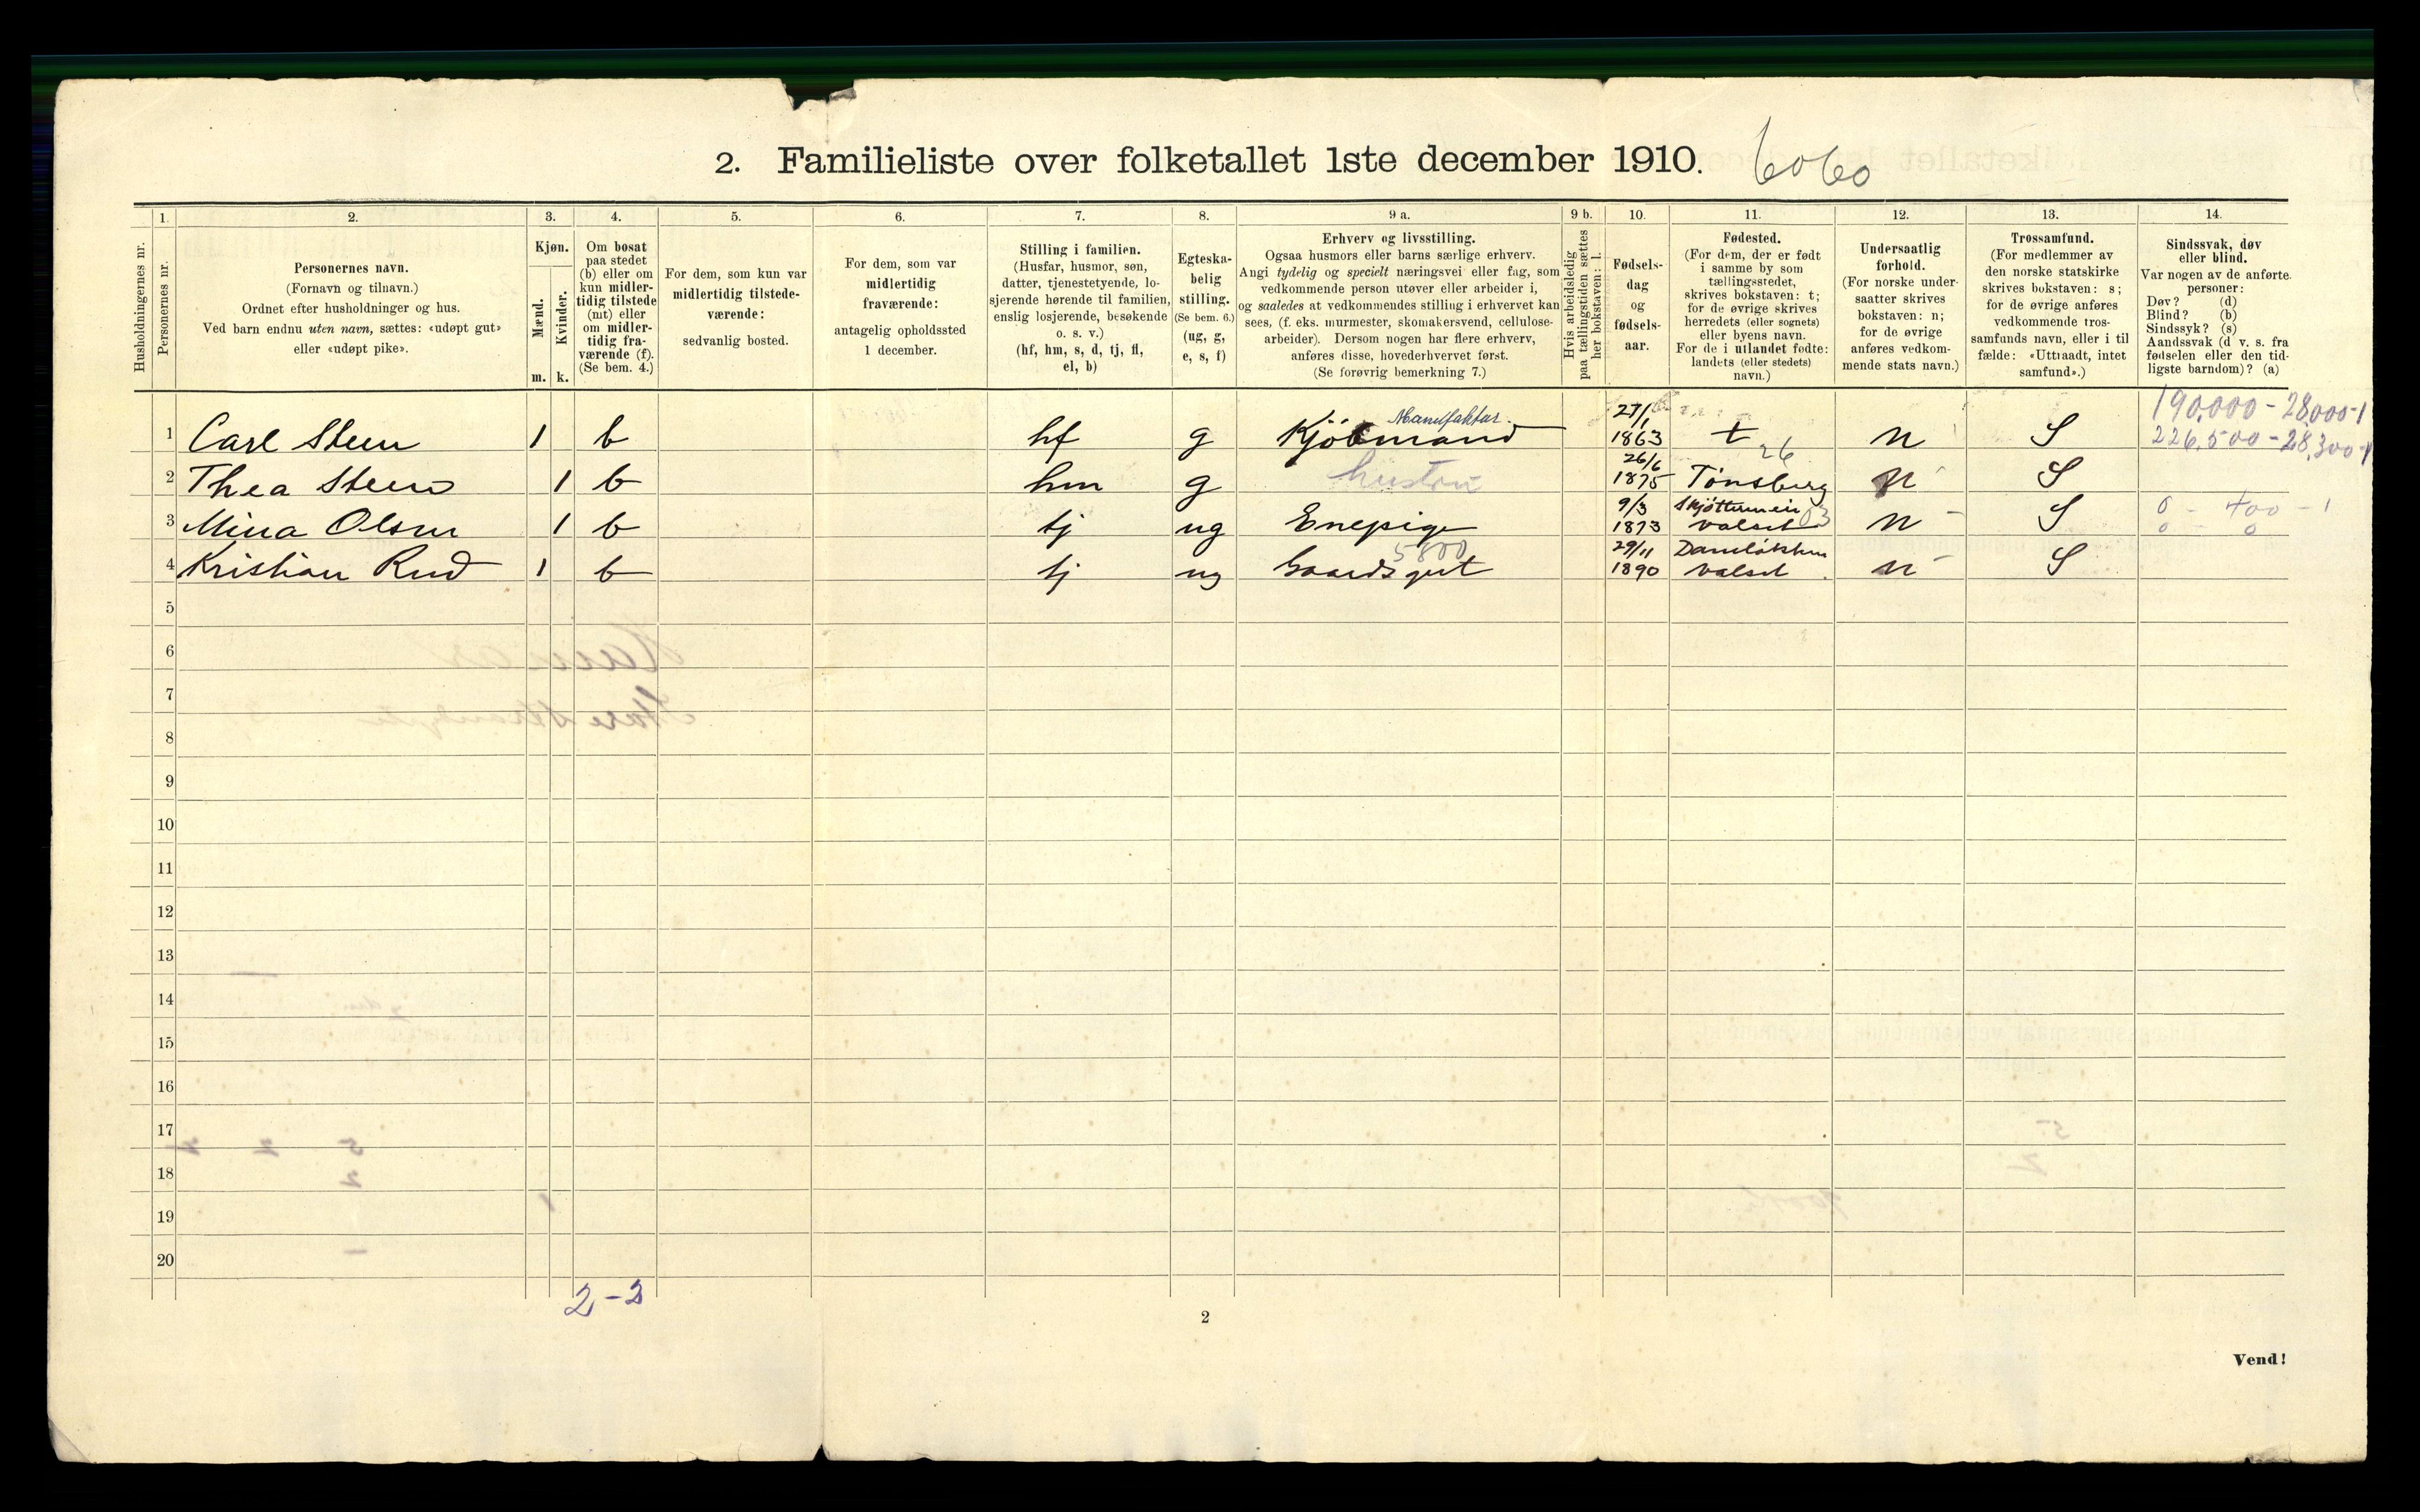 2. Familieliste over folketallet 1ste december 1910. 6060
Husholdningernes nr.
1. Personernes nr.
2. Personernes navn. (Fornavn og tilnavn.) Ordnet efter husholdninger og hus. Ved barn endnu uten navn, sættes: «udøpt gut» eller «udøpt pike».
3. Kjøn. Mænd. m. Kvinder. k.
4. Om bosat paa stedet (b) eller om kun midlertidig tilstede (mt) eller om midlertidig fraværende (f). (Se bem. 4.)
5. For dem, som kun var midlertidig tilstedeværende: sedvanlig bosted.
6. For dem, som var midlertidig fraværende: antagelig opholdssted 1 december.
7. Stilling i familien. (Husfar, husmor, søn, datter, tjenestetyende, losjerende hørende til familien, enslig losjerende, besøkende o. s. v.) (hf, hm, s, d, tj, fl, el, b)
8. Egteskabelig stilling. (Se bem. 6.) (ug, g, e, s, f)
9 a. Erhverv og livsstilling. Ogsaa husmors eller barns særlige erhverv. Angi tydelig og specielt næringsvei eller fag, som vedkommende person utøver eller arbeider i, og saaledes at vedkommendes stilling i erhvervet kan sees, (f. eks. murmester, skomakersvend, cellulosearbeider). Dersom nogen har flere erhverv, anføres disse, hovederhvervet først. (Se forøvrig bemerkning 7.)
9 b. Hvis arbeidsledig paa tællingstiden sættes her bokstaven: l.
10. Fødselsdag og fødselsaar.
11. Fødested. (For dem, der er født i samme by som tællingsstedet, skrives bokstaven: t; for de øvrige skrives herredets (eller sognets) eller byens navn. For de i utlandet fødte: landets (eller stedets) navn.)
12. Undersaatlig forhold. (For norske undersaatter skrives bokstaven: n; for de øvrige anføres vedkommende stats navn.)
13. Trossamfund. (For medlemmer av den norske statskirke skrives bokstaven: s; for de øvrige anføres vedkommende trossamfunds navn, eller i tilfælde: «Uttraadt, intet samfund».)
14. Sindssvak, døv eller blind. Var nogen av de anførte personer: Døv? (d) Blind? (b) Sindssyk? (s) Aandssvak (d. v. s. fra fødselen eller den tidligste barndom)? (a)
1 Carl Steen 1 b hf g Manufaktur Kjøbmand 27/1 1863 t n S 190.000 - 28.000 - 1
226.500 - 28.300 - 1
2 Thea Steen 1 b hm g hustru 26/6 1875 Tønsberg 26 n S
3 Mina Olsen 1 b tj ug Enepige 9/3 1873 valset 03 n S 0 - 400 - 1
0 - 0
4 Kristian Rud 1 b tj ug Gaardsgut 5800 29/11 1890 valset n S
5
6
7
8
9
10
11
12
13
14
15
16
17
18
19
20
2-2
2
Vend!